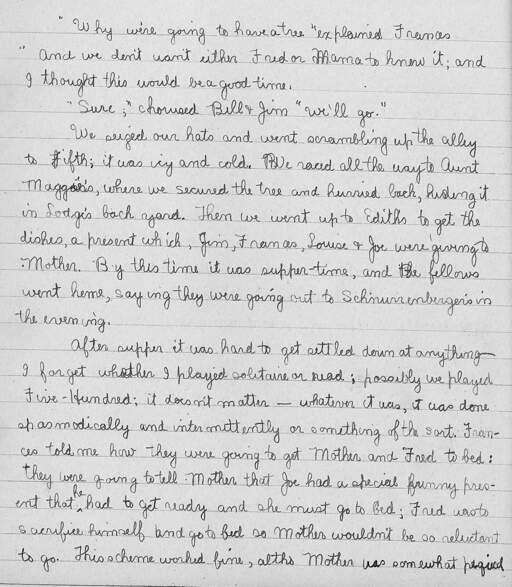 "Why we're going to have a tree" explained Frances
"and we don't want either Fred or Mama to know it; and
I thought this would be a good time.
"Sure," chorused Bill & Jim "We'll go."
We seized our hats and went scrambling up the alley
to Fifth; it was icy and cold. We raced all the way to Aunt
Maggie's, where we secured the tree and hurried back, hiding it
in Lodge's back yard. Then we went up to Ediths to get the
dishes, a present which, Jim, Frances, Louise & Joe were giving to
Mother. By this time it was supper-time, and the fellows
went home, saying they were going out to Schnurrenberger's in
the evening.
After supper it was hard to get settled down at anything—
I forget whether I played solitaire or read; possibly we played
Five-Hundred; it doesn't matter — whatever it was, it was done
spasmodically and intermittently or something of the sort. Fran-
ces told me how they were going to get Mother and Fred to bed:
they were going to tell Mother that Joe had a special funny pres-
ent that he had to get ready and she must go to bed; Fred was to
sacrifice himself and go to bed so Mother wouldn't be so reluctant
to go. This scheme worked fine, altho Mother was somewhat